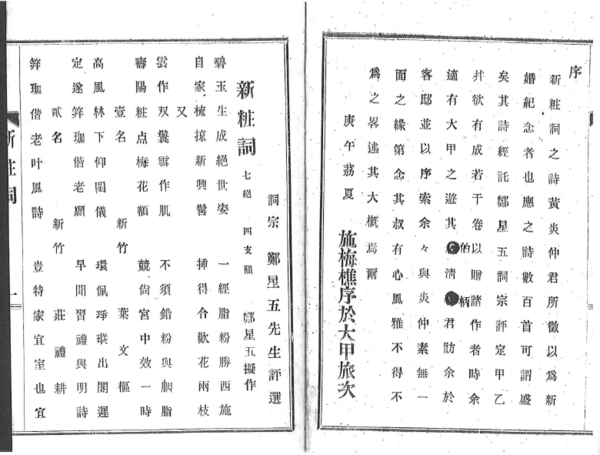 序
新粧詞之詩黃炎仲君所徵以爲新
婚紀念者也應之詩數百首可謂盛
矣其詩經託鄭星五詞宗評定甲乙
幷欲有成若干卷以贈諸作者時余
適有大甲之遊其伯清柄君訪余於
客邸並以序索余々與炎仲素無一
面之緣第念其叔有心風雅不得不
爲之畧述其大槪焉爾
庚午荔夏
施梅樵序於大甲旅次
新粧詞 七絕 四支韻
詞宗 鄭星五先生評選
鄭星五擬作
碧玉生成絕世姿 一經脂粉勝西施
自家梳掠新興髻 挿得合歡花兩枝
又
雲作双鬟雪作肌 不須鉛粉與胭脂
壽陽粧点梅花額 競尙宮中效一時
壹名 新竹 葉文樞
高風林下仰閨儀 環佩琤瑽出閣遲
定遂笄珈偕老願 早聞習禮與明詩
貳名 新竹 莊禮耕
笄珈偕老叶風詩 豈特家宜室也宜
新粧詞 一